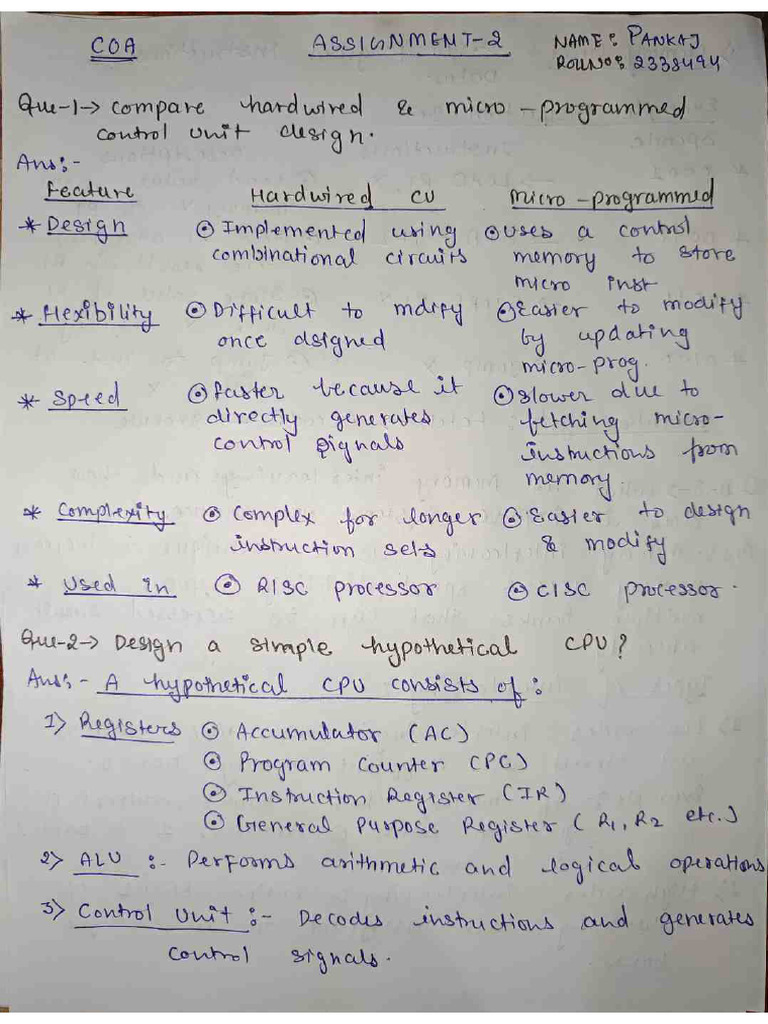 COA ASSIGNMENT-2 NAME: PANKAJ
ROLLNO: 2338494
Que-1→ compare hardwired & micro-programmed
control unit design.
Ans:-
Feature Hardwired CU Micro-programmed
* Design ⊙ Implemented using ⊙ uses a control
combinational circuits memory to store
micro inst
* Flexibility ⊙ Difficult to mdify ⊙ Easier to modify
once dsigned by updating
micro-prog.
* Speed ⊙ faster because it ⊙ slower due to
directly generates fetching micro-
control signals instructions from
memory.
* Complexity ⊙ Complex for longer ⊙ Easier to design
instruction sets & modify
* Used in ⊙ RISC processor ⊙ CISC processor.
Que-2→ Design a simple hypothetical CPU?
Ans:- A hypothetical CPU consists of:
1) Registers ⊙ Accumulator (AC)
⊙ Program Counter (PC)
⊙ Instruction Register (IR)
⊙ General Purpose Register (R1, R2 etc.)
2) ALU :- Performs arithmetic and logical operations
3) Control Unit :- Decodes instructions and generates
control signals.